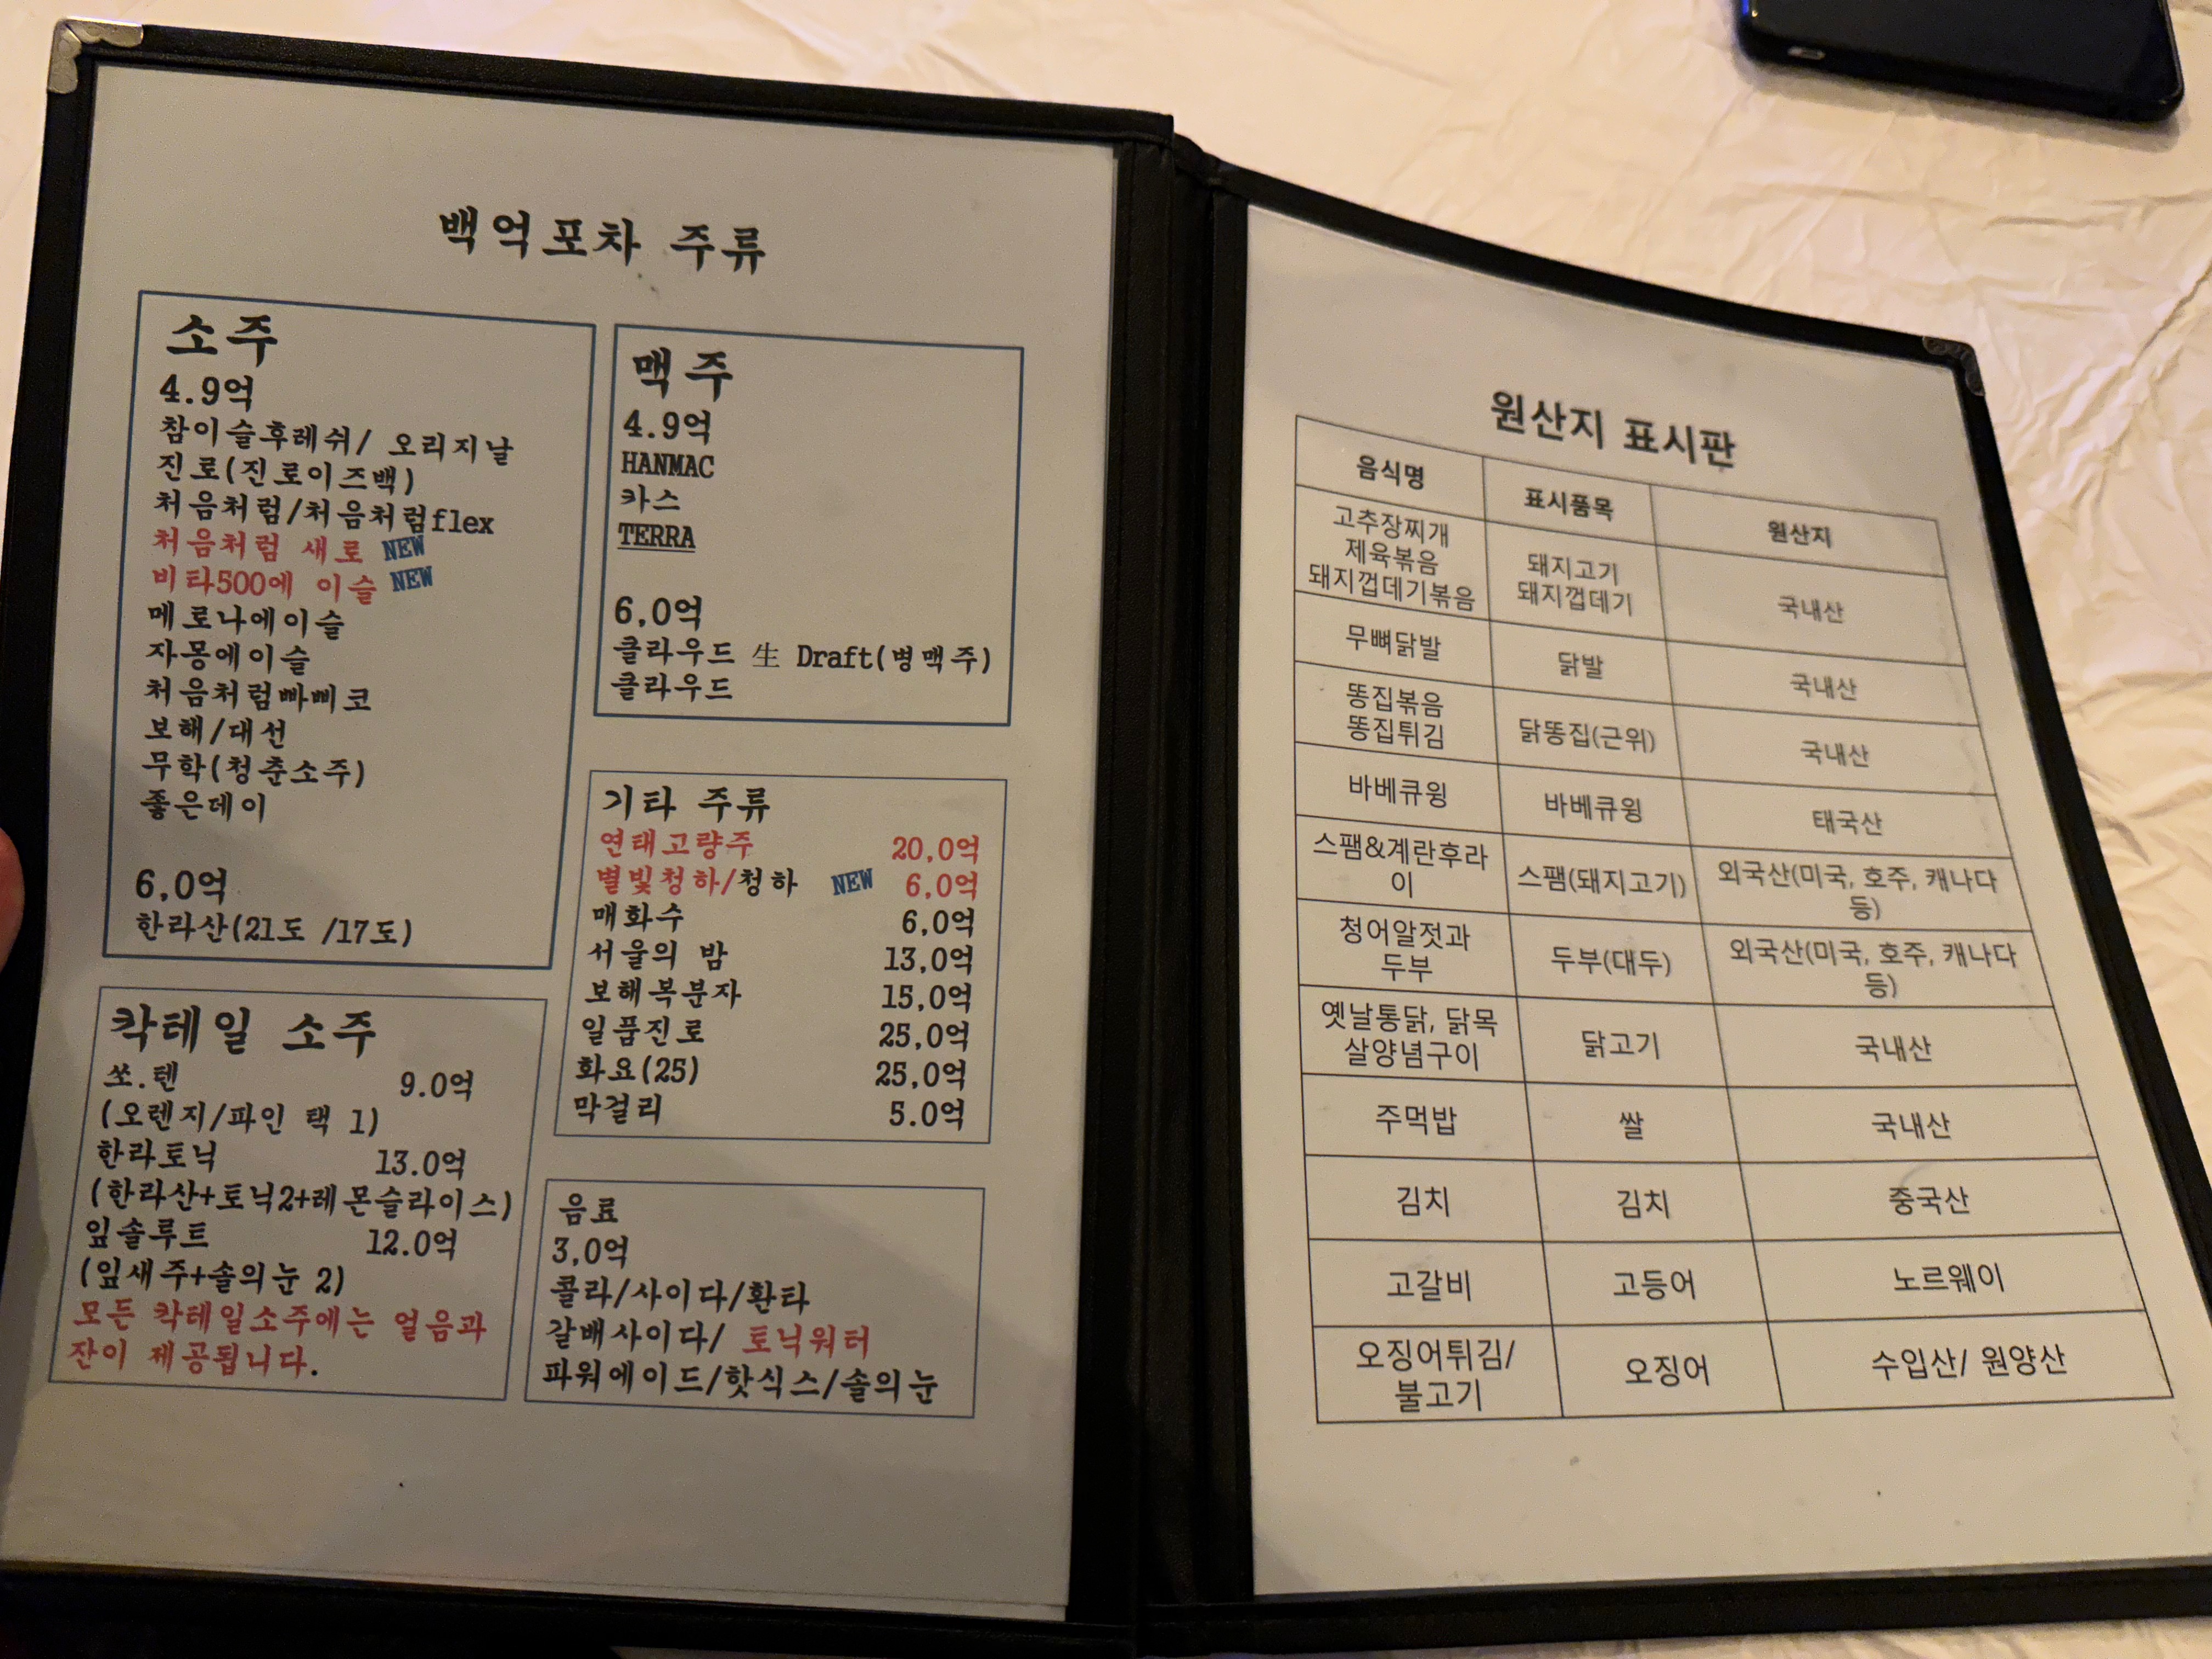 백억포차 주류
소주
4.9억
참이슬후레쉬/ 오리지날
진로(진로이즈백)
처음처럼/처음처럼flex
처음처럼 새로 NEW
비타500에 이슬 NEW
메로나에이슬
자몽에이슬
처음처럼빠삐코
보해/대선
무학(청춘소주)
좋은데이
6,0억
한라산(21도 /17도)
칵테일 소주
쏘.텐 9.0억
(오렌지/파인 택 1)
한라토닉 13.0억
(한라산+토닉2+레몬슬라이스)
잎솔루트 12.0억
(잎새주+솔의눈 2)
모든 칵테일소주에는 얼음과
잔이 제공됩니다.
맥주
4.9억
HANMAC
카스
TERRA
6,0억
클라우드 生 Draft(병맥주)
클라우드
기타 주류
연태고량주 20,0억
별빛청하/청하 NEW 6,0억
매화수 6,0억
서울의 밤 13,0억
보해복분자 15,0억
일품진로 25,0억
화요(25) 25,0억
막걸리 5.0억
음료
3,0억
콜라/사이다/환타
갈배사이다/ 토닉워터
파워에이드/핫식스/솔의눈
원산지 표시판
음식명 표시품목 원산지
고추장찌개
제육볶음
돼지껍데기볶음
돼지고기
돼지껍데기
국내산
무뼈닭발 닭발 국내산
똥집볶음
똥집튀김
닭똥집(근위) 국내산
바베큐윙 바베큐윙 태국산
스팸&계란후라
이
스팸(돼지고기)
외국산(미국, 호주, 캐나다
등)
청어알젓과
두부
두부(대두)
외국산(미국, 호주, 캐나다
등)
옛날통닭, 닭목
살양념구이
닭고기 국내산
주먹밥 쌀 국내산
김치 김치 중국산
고갈비 고등어 노르웨이
오징어튀김/
불고기
오징어 수입산/ 원양산